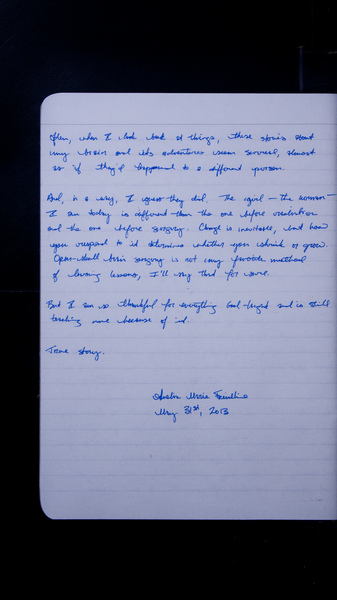 Often, when I look back at things, these stories about
my brain and its adventures seem surreal, almost
as if they'd happened to a different person.
And, in a way, I guess they did. The girl – the woman –
I am today is different than the one before
and the one before surgery. Change is inevitable, but how
you respond to it determines whether you shrink or grow.
Open-skull brain surgery is not my favorite method
of learning lessons, I'll say that for sure.
But I am so thankful for everything God taught and is still
teaching me because of it.
True story.
Marie
May 31st, 2013